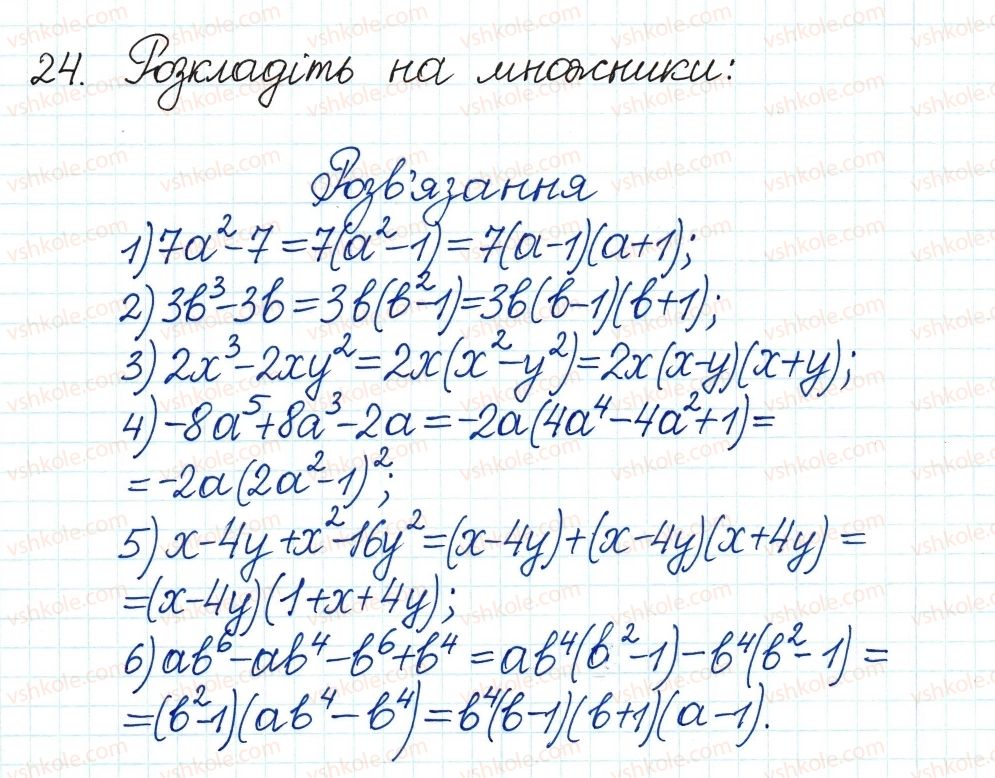 24. Розкладіть на множники:
Розв'язання
1) 7a² - 7 = 7(a² - 1) = 7(a - 1)(a + 1);
2) 3в³ - 3в = 3в(в² - 1) = 3в(в - 1)(в + 1);
3) 2x³ - 2xy² = 2x(x² - y²) = 2x(x - y)(x + y);
4) -8a⁵ + 8a³ - 2a = -2a(4a⁴ - 4a² + 1) =
= -2a(2a² - 1)²;
5) x - 4y + x² - 16y² = (x - 4y) + (x - 4y)(x + 4y) =
= (x - 4y)(1 + x + 4y);
6) aв⁶ - aв⁴ - в⁶ + в⁴ = aв⁴(в² - 1) - в⁴(в² - 1) =
= (в² - 1)(aв⁴ - в⁴) = в⁴(в - 1)(в + 1)(a - 1).